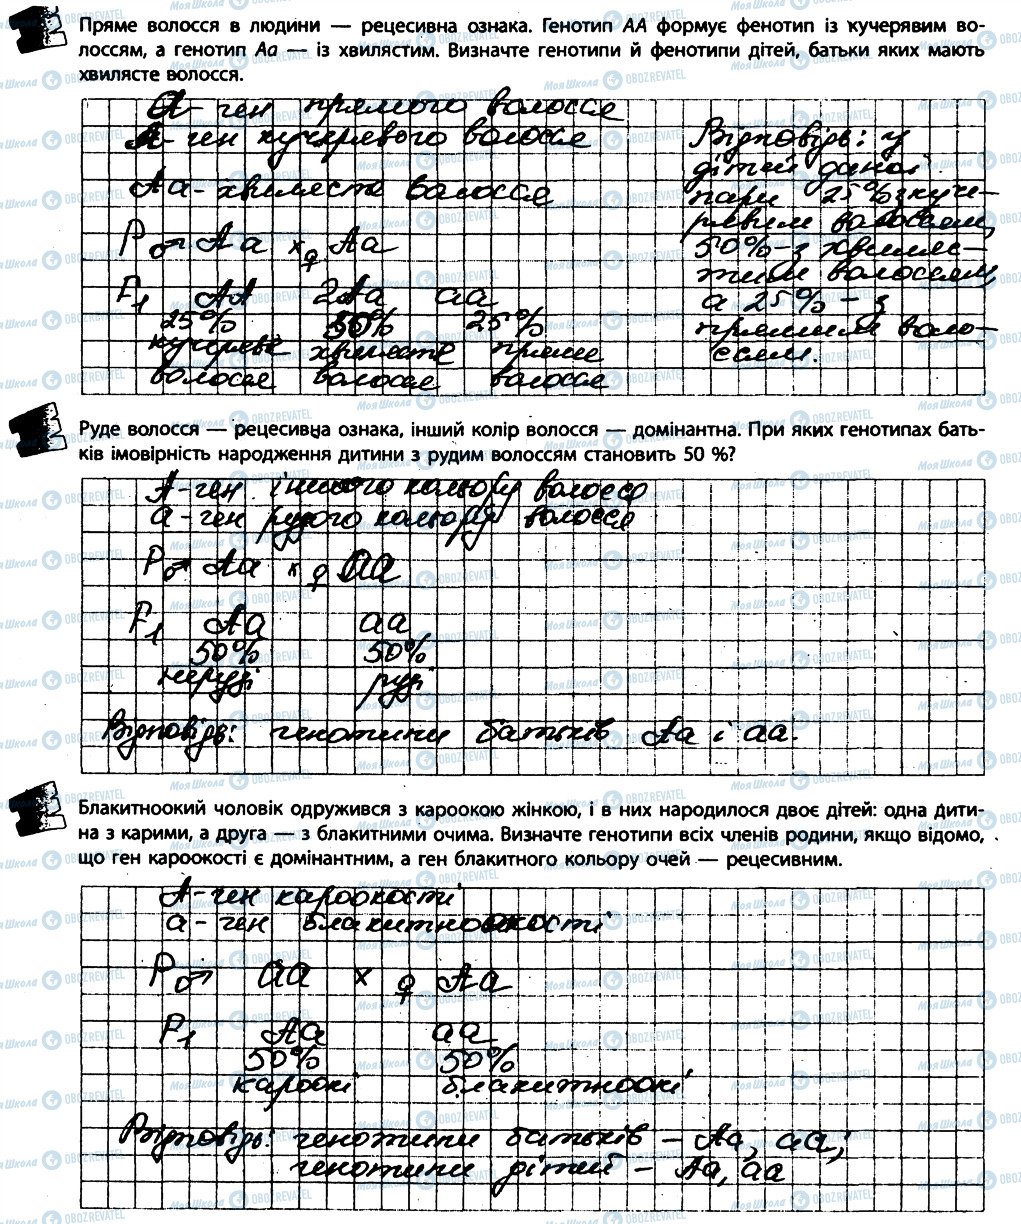 Пряме волосся в людини — рецесивна ознака. Генотип АА формує фенотип із кучерявим во-
лоссям, а генотип Аа — із хвилястим. Визначте генотипи й фенотипи дітей, батьки яких мають
хвилясте волосся.
а - ген прямого волосся
А - ген кучерявого волосся
Аа - хвилясте волосся
P ♂ Аа x ♀ Аа
F1 АА 2Аа аа
25% 50% 25%
кучеряве хвилясте пряме
волосся волосся волосся
Відповідь: у
дітей даної
пари 25% з куче-
рявим волоссям,
50% - з хвиляс-
тим волоссям,
а 25% - з
прямим воло-
ссям.
Руде волосся — рецесивна ознака, інший колір волосся — домінантна. При яких генотипах бать-
ків імовірність народження дитини з рудим волоссям становить 50 %?
А - ген іншого кольору волосся
а - ген рудого кольору волосся
P ♂ Аа x ♀ аа
F1 Аа аа
50% 50%
неруді руді
Відповідь: генотипи батьків Аа і аа.
Блакитноокий чоловік одружився з кароокою жінкою, і в них народилося двоє дітей: одна дити-
на з карими, а друга — з блакитними очима. Визначте генотипи всіх членів родини, якщо відомо,
що ген кароокості є домінантним, а ген блакитного кольору очей — рецесивним.
А - ген кароокості
а - ген блакитноокості
P ♂ аа x ♀ Аа
F1 Аа аа
50% 50%
кароокі блакитноокі
Відповідь: генотипи батьків - Аа, аа;
генотипи дітей - Аа, аа